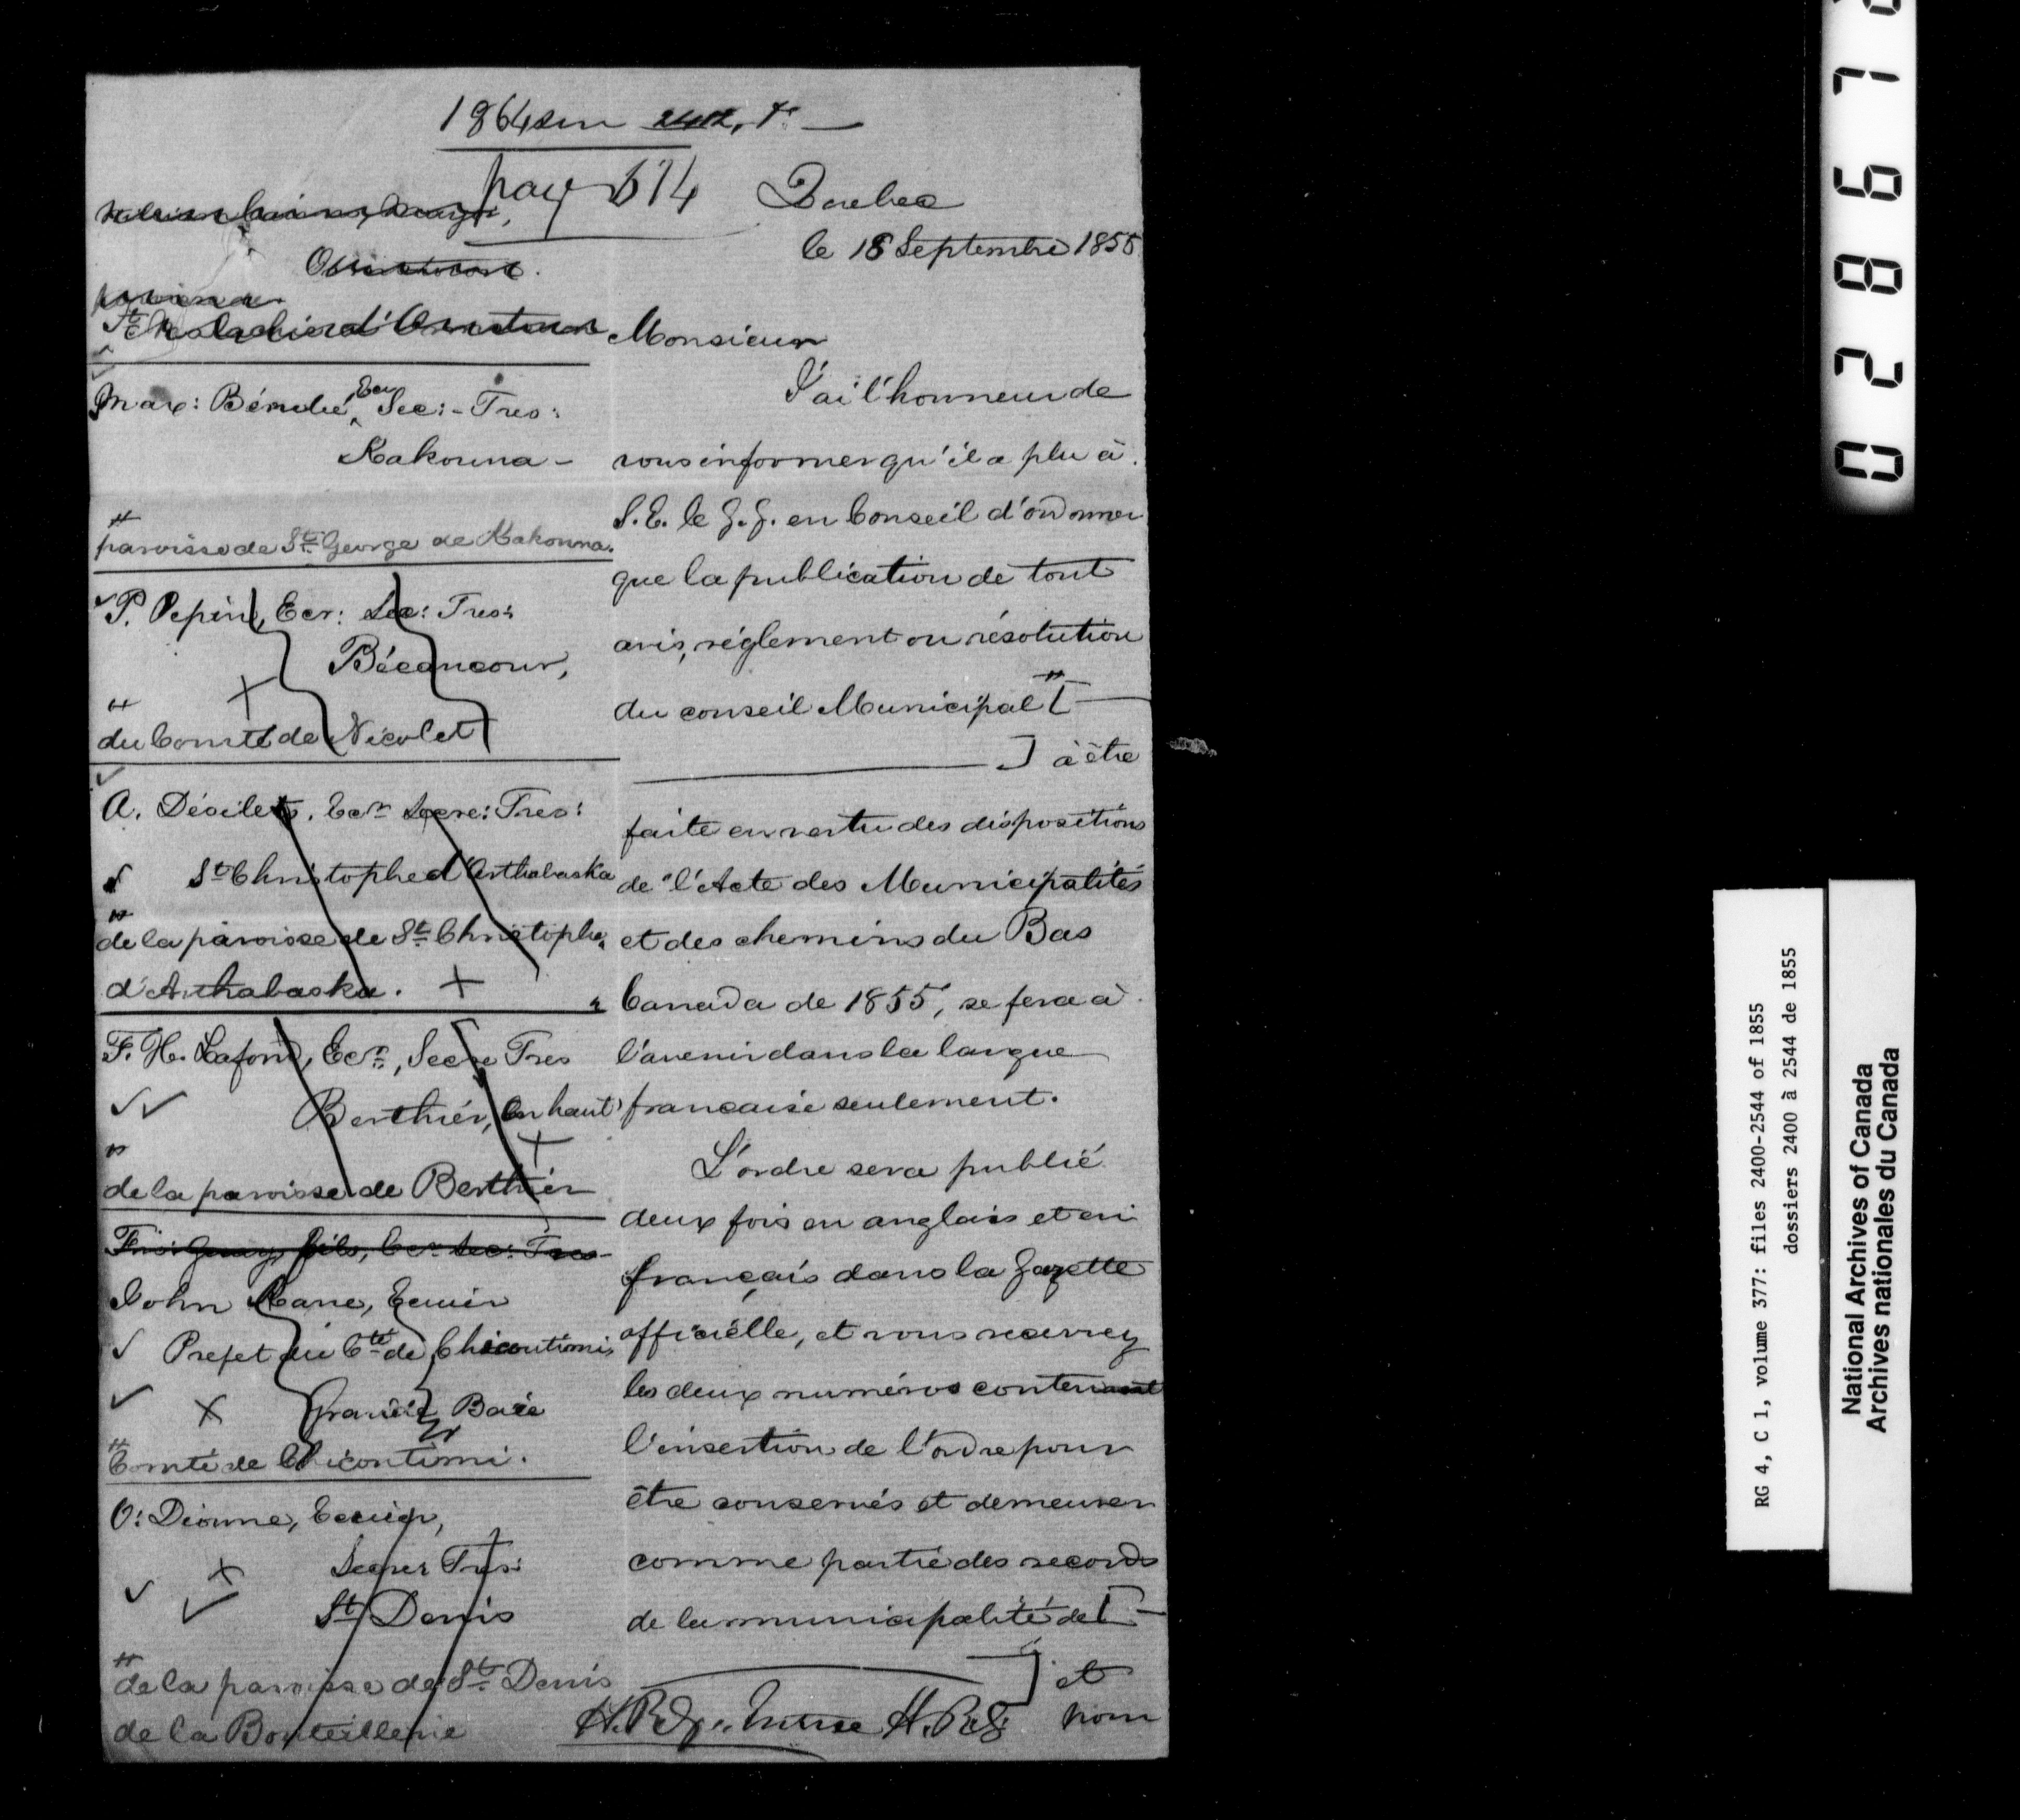 1864
page 614
Quebec
le 18 Septembre 1855
Max: Bérubé, Ecr Sec:-Tres:
Kakouna -
paroisse de St. George de Kakouna.
P. Pepin, Ecr: Sec: Tres:
Bécancour,
du Comté de Nicolet
A. Désilets, Ecr Secre: Tres:
St Christophe d'Arthabaska
de la paroisse de St. Christophe
d'Arthabaska.
F. H. Lafond, Ecr., Secre Tres
Berthier, en haut
de la paroisse de Berthier
Frs: Guay, fils, Ecr Sec: Tres
John Kane, Ecuier
Prefet du Cté de Chicoutimi
Grande Baie
Comté de Chicoutimi.
O: Dionne, Ecuier,
Secrer Tres:
St Denis
de la paroisse de St. Denis
de la Bouteillerie
Monsieur
J'ai l'honneur de
vous informer qu'il a plu à
S. E. le G. G. en Conseil d'ordonner
que la publication de tout
avis, réglement ou résolution
du conseil Municipal [
] à être
faite en vertu des dispositions
de "l'Acte des Municipalités
et des chemins du Bas
Canada de 1855", se fera à
l'avenir dans la langue
francaise seulement.
L'ordre sera publié
deux fois en anglais et en
français dans la Gazette
officielle, et vous recevrez
les deux numéros contenant
l'insertion de l'ordre pour
être conservés et demeurer
comme partie des records
de la municipalité de [
] et
pour
0 2 8 6 7
RG 4, C 1, volume 377: files 2400-2544 of 1855
dossiers 2400 à 2544 de 1855
National Archives of Canada
Archives nationales du Canada